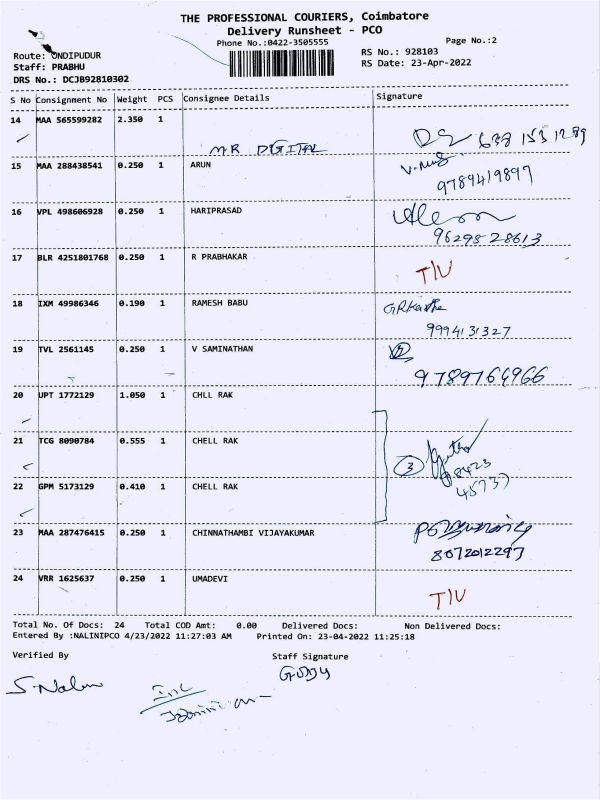 THE PROFESSIONAL COURIERS, Coimbatore
Delivery Runsheet - PCO
Phone No.:0422-3505555
Page No.:2
Route: ONDIPUDUR
Staff: PRABHU
DRS No.: DCJB92810302
RS No.: 928103
RS Date: 23-Apr-2022
S No Consignment No Weight PCS Consignee Details Signature
14 MAA 565599282 2.350 1
MR DIGITAL
15 MAA 288438541 0.250 1 ARUN
9789419897
16 VPL 498606928 0.250 1 HARIPRASAD
96295 28613
17 BLR 4251801768 0.250 1 R PRABHAKAR T/U
18 IXM 49986346 0.190 1 RAMESH BABU
9994131327
19 TVL 2561145 0.250 1 V SAMINATHAN
9789764966
20 UPT 1772129 1.050 1 CHLL RAK
21 TCG 8090784 0.555 1 CHELL RAK
3
22 GPM 5173129 0.410 1 CHELL RAK
45737
23 MAA 287476415 0.250 1 CHINNATHAMBI VIJAYAKUMAR
8072012297
24 VRR 1625637 0.250 1 UMADEVI T/U
Total No. Of Docs: 24 Total COD Amt: 0.00 Delivered Docs: Non Delivered Docs:
Entered By :NALINIPCO 4/23/2022 11:27:03 AM Printed On: 23-04-2022 11:25:18
Verified By Staff Signature